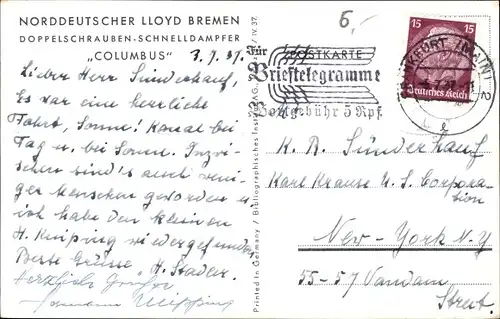 NORDDEUTSCHER LLOYD BREMEN
DOPPELSCHRAUBEN-SCHNELLDAMPFER
„COLUMBUS"
3.7.37.
Lieber Herr Sünderhauf,
Es war eine herrliche
Fahrt, Sonne! Kanal bei
Tag u. bei Sonne. Inzwi-
schen sind's auch weni-
ger Menschen geworden u.
ich habe den kleinen
H. Knipping wiedergefunden
Beste Grüsse, H. Stader.
Herzliche Grüße
Printed in Germany / Bibliographisches Institut AG.
IV. 37.
6,-
Für
POSTKARTE
Brieftelegramme
Postgebühr 5 Rpf.
15 15
Deutsches Reich
FRANKFURT (MAIN) 2
K. R. Sünderhauf
Karl Krause U. S. Corpora-
tion
New-York N.Y
55-57 Vandam
Street.